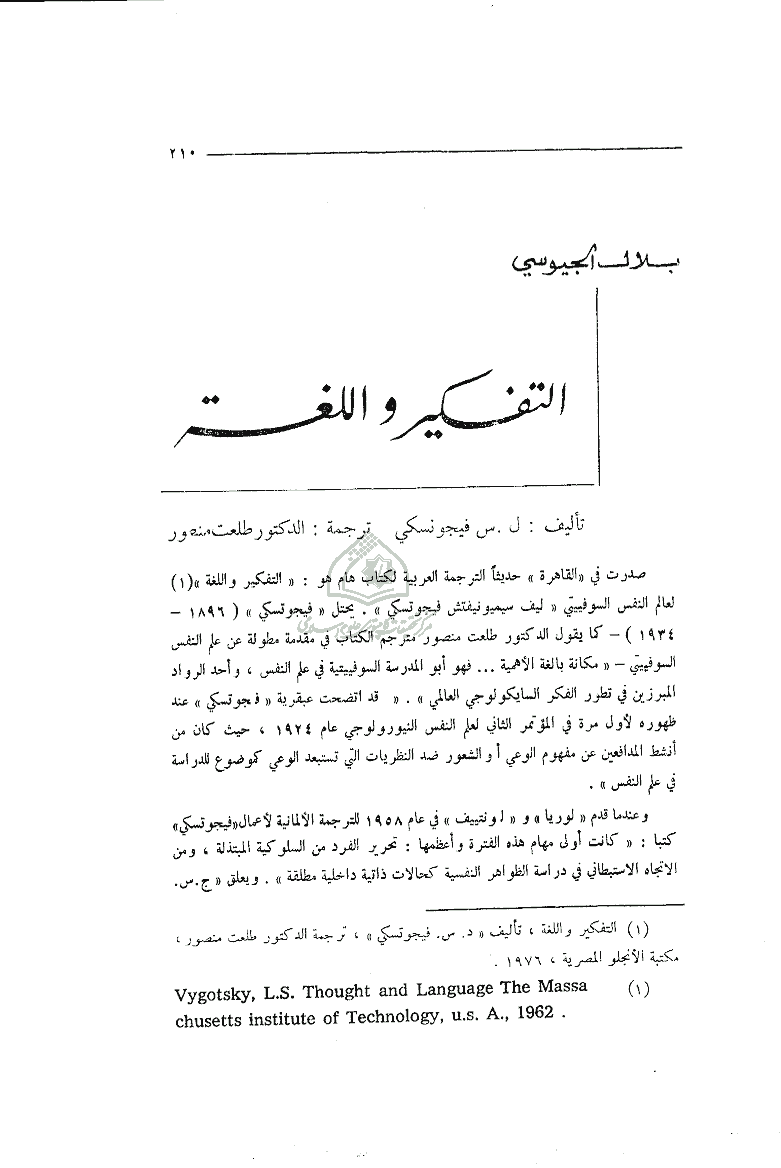 ٢١٠
بلال الجيوسي
التفكير و اللغة
تأليف : ل . س فيجوتسكي ترجمة : الدكتور طلعت منصور
صدرت في «القاهرة » حديثاً الترجمة العربية لكتاب هام هو : « التفكير واللغة »(١)
لعالم النفس السوفييتي « ليف سيميونيفتش فيجوتسكي » . يحتل « فيجوتسكي » ( ١٨٩٦ –
١٩٣٤ ) – كما يقول الدكتور طلعت منصور مترجم الكتاب في مقدمة مطولة عن علم النفس
السوفييتي – « مكانة بالغة الأهمية ... فهو أبو المدرسة السوفييتية في علم النفس ، وأحد الرواد
المبرزين في تطور الفكر السايكولوجي العالمي » . « قد اتضحت عبقرية « فجوتسكي » عند
ظهوره لأول مرة في المؤتمر الثاني لعلم النفس النيورولوجي عام ١٩٢٤ ، حيث كان من
أنشط المدافعين عن مفهوم الوعي أو الشعور ضد النظريات التي تستبعد الوعي كموضوع للدراسة
في علم النفس » .
وعندما قدم « لوريا » و « لونتييف » في عام ١٩٥٨ للترجمة الألمانية لأعمال«فيجوتسكي»
كتبا : « كانت أولى مهام هذه الفترة وأعظمها : تحرير الفرد من السلوكية المبتذلة ، ومن
الاتجاه الاستبطاني في دراسة الظواهر النفسية كحالات ذاتية داخلية مطلقة » . ويعلق « ج.س.
(١) التفكير واللغة ، تأليف « د. س. فيجوتسكي » ، ترجمة الدكتور طلعت منصور ،
مكتبة الأنجلو المصرية ، ١٩٧٦ .
Vygotsky, L.S. Thought and Language The Massa (١)
chusetts institute of Technology, u.s. A., 1962 .